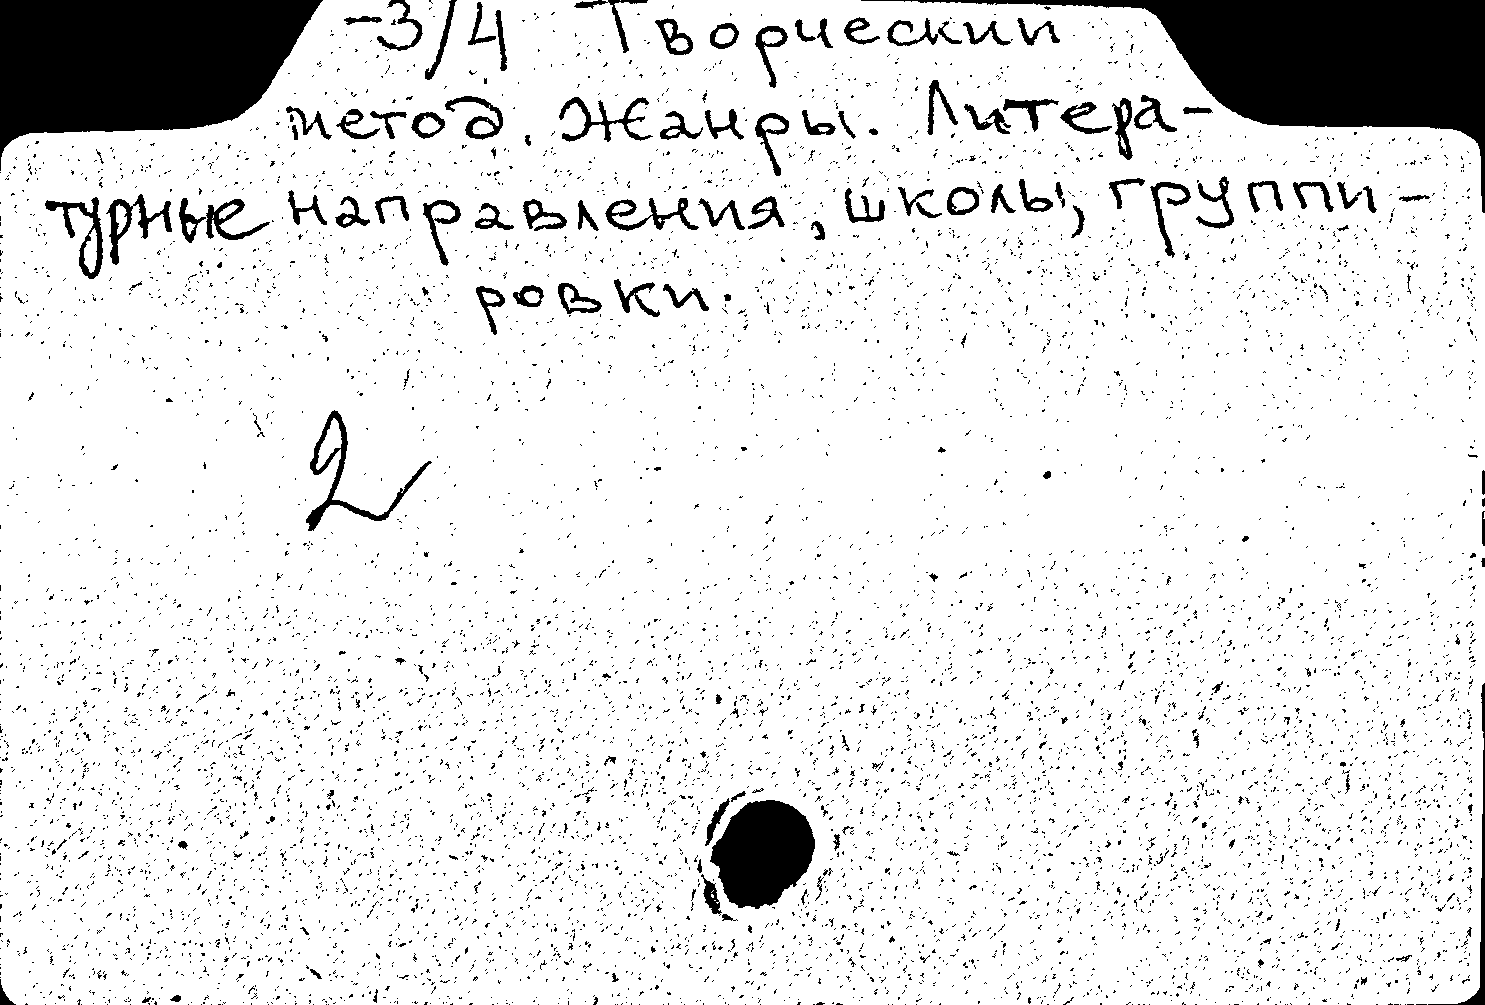 -3/4 Творческий
метод. Жанры. Литера-
турные направления, школы, группи-
ровки.
2